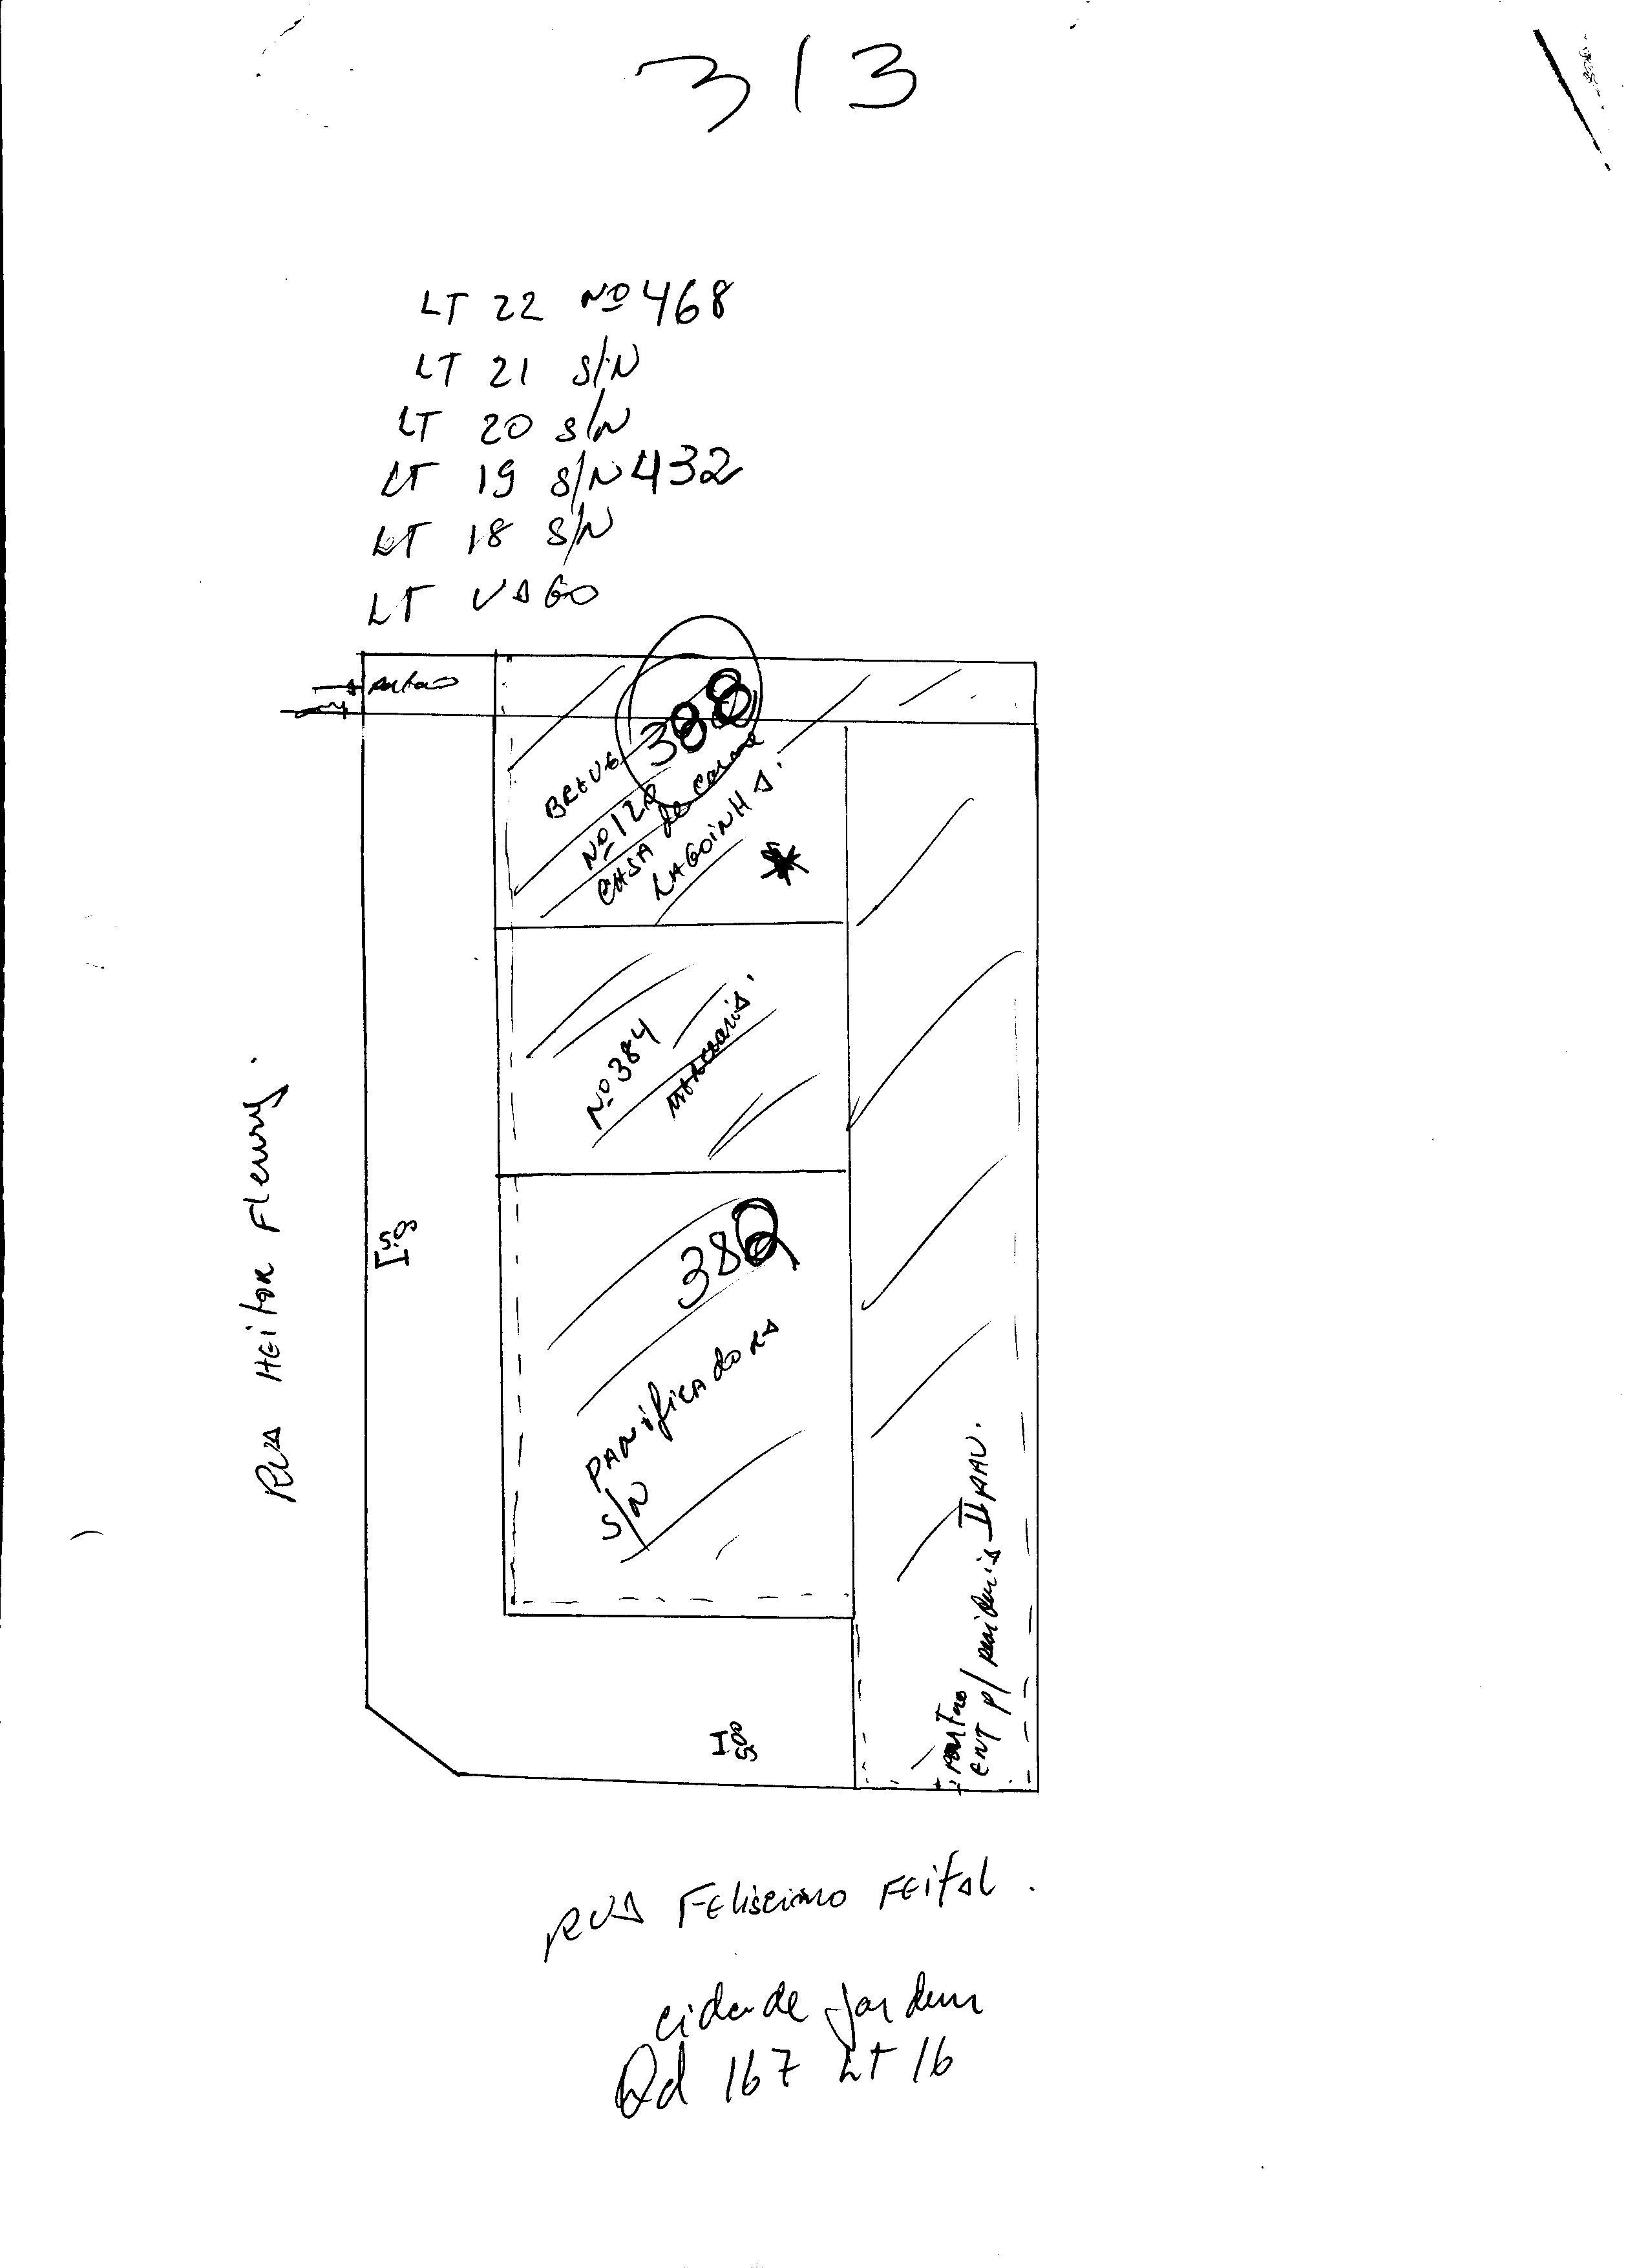 313
LT 22 Nº 468
LT 21 S/N
LT 20 S/N
LT 19 S/N 432
LT 18 S/N
LT VAGO
388
Nº 128
CASA de Carne
LAGOINHA
Nº 384
382
PANificAdoRA
S/N
5.00
RUA HEitor Fleury.
ENT p/
II PAV.
5.00
RUA FEliscimo FEitAl.
cidade jardim
Qd 167 Lt 16